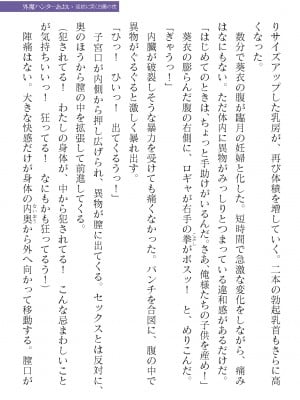 外魔ハンターあおい
りサイズアップした乳房が、再び体積を増していく。二本の勃起乳首もさらに高
くなった。
　数分で葵衣の腹が臨月の妊婦と化した。短時間で急激な変化をしながら、痛み
はなにもない。ただ体内に異物がみっしりとつまっている違和感があるだけだ。
「はじめてのときは、ちょっと手助けがいるんだ。さあ、俺様たちの子供を産め！」
　葵衣の膨らんだ腹の右側に、ロギャが右手の拳がボスッ！　と、めりこんだ。
「ぎゃうっ！」
　内臓が破裂しそうな暴力を受けても痛くなかった。パンチを合図に、腹の中で
異物がぐるぐると激しく暴れ出す。
「ひっ！　ひいっ！　出てくるうっ！」
　子宮口が内側から押し広げられ、異物が膣に出てくる。セックスとは反対に、
奥のほうから膣の中を拡張して前進してくる。
（犯されてる！　わたしの身体が、中から犯されてる！　こんな忌まわしいこと
が気持ちいいっ！　狂ってる！　なにもかも狂ってるう！）
　陣痛はない。大きな快感だけが身体の内奥から外へ向かって移動する。膣口が